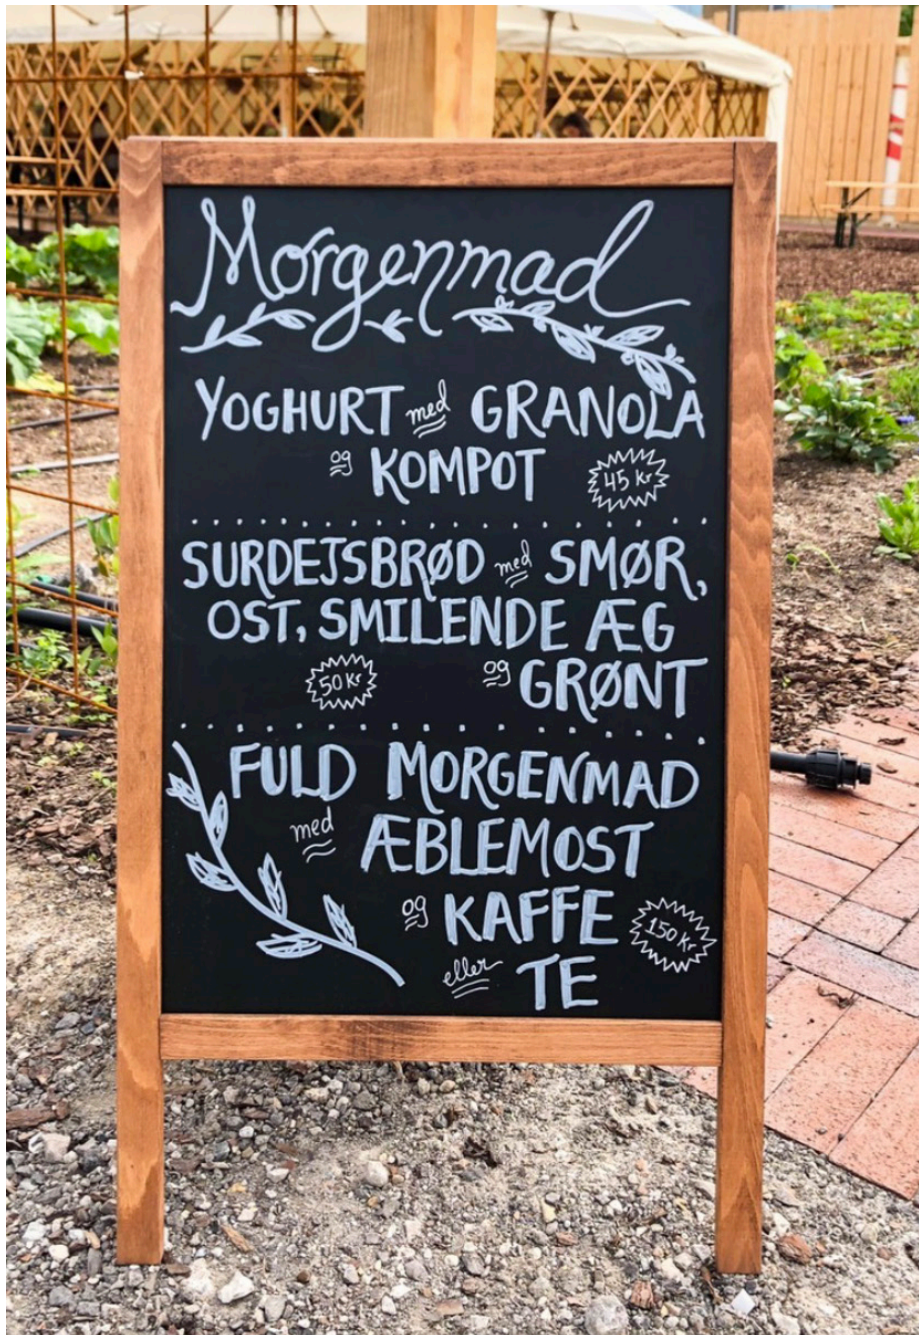 Morgenmad
YOGHURT med GRANOLA
og KOMPOT 45 Kr
SURDEJSBRØD med SMØR,
OST, SMILENDE ÆG
50 Kr og GRØNT
FULD MORGENMAD
med ÆBLEMOST
og KAFFE 150 Kr
eller TE